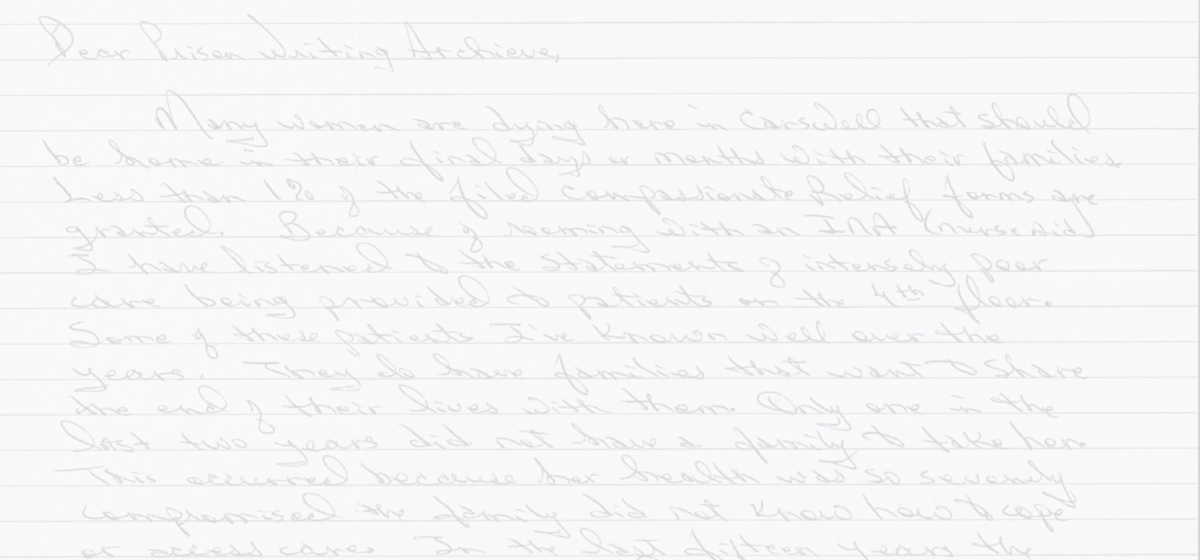 Dear Prison Writing Archieve,
Many women are dying here in Carswell that should
be home in their final days or months with their families.
Less than 1% of the filed Compassionate Relief forms are
granted. Because of rooming with an INA (nurse aid)
I have listened to the statements of intensely poor
care being provided to patients on the 4th floor.
Some of these patients I've known well over the
years. They do have families that want to share
the end of their lives with them. Only one in the
last two years did not have a family to take her.
This occurred because her health was so severely
compromised the family did not know how to cope
or access care. In the last fifteen years the